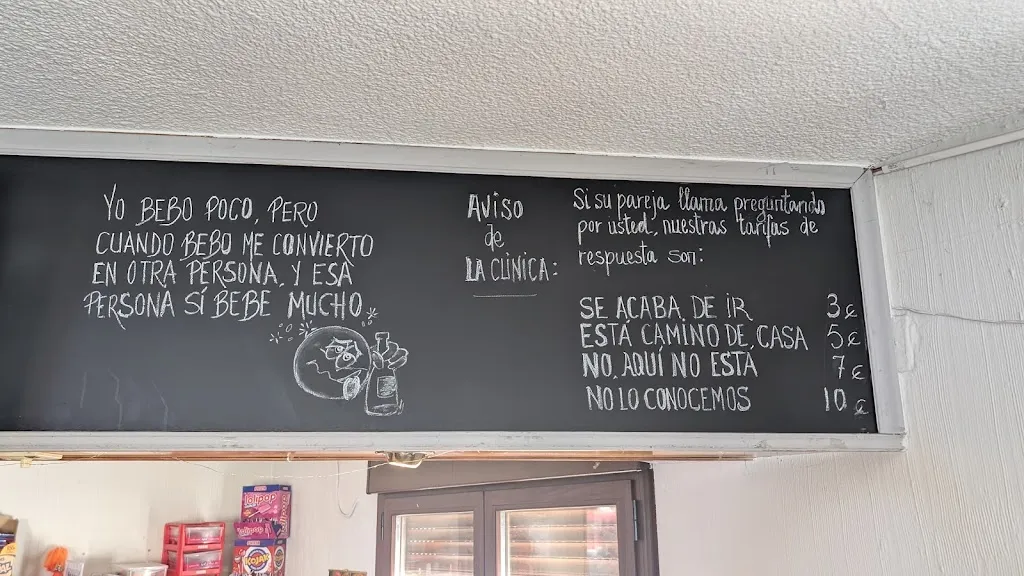 YO BEBO POCO, PERO
CUANDO BEBO ME CONVIERTO
EN OTRA PERSONA, Y ESA
PERSONA SÍ BEBE MUCHO.
AVISO
de
LA CLÍNICA:
Si su pareja llama preguntando
por usted, nuestras tarifas de
respuesta son:
SE ACABA DE IR 3€
ESTÁ CAMINO DE CASA 5€
NO, AQUÍ NO ESTÁ 7€
NO LO CONOCEMOS 10€
Lolipop
Lolipop
KOJAK